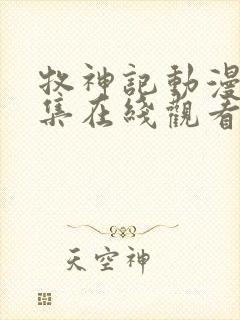 牧神記動漫
集在綫觀看
天空神